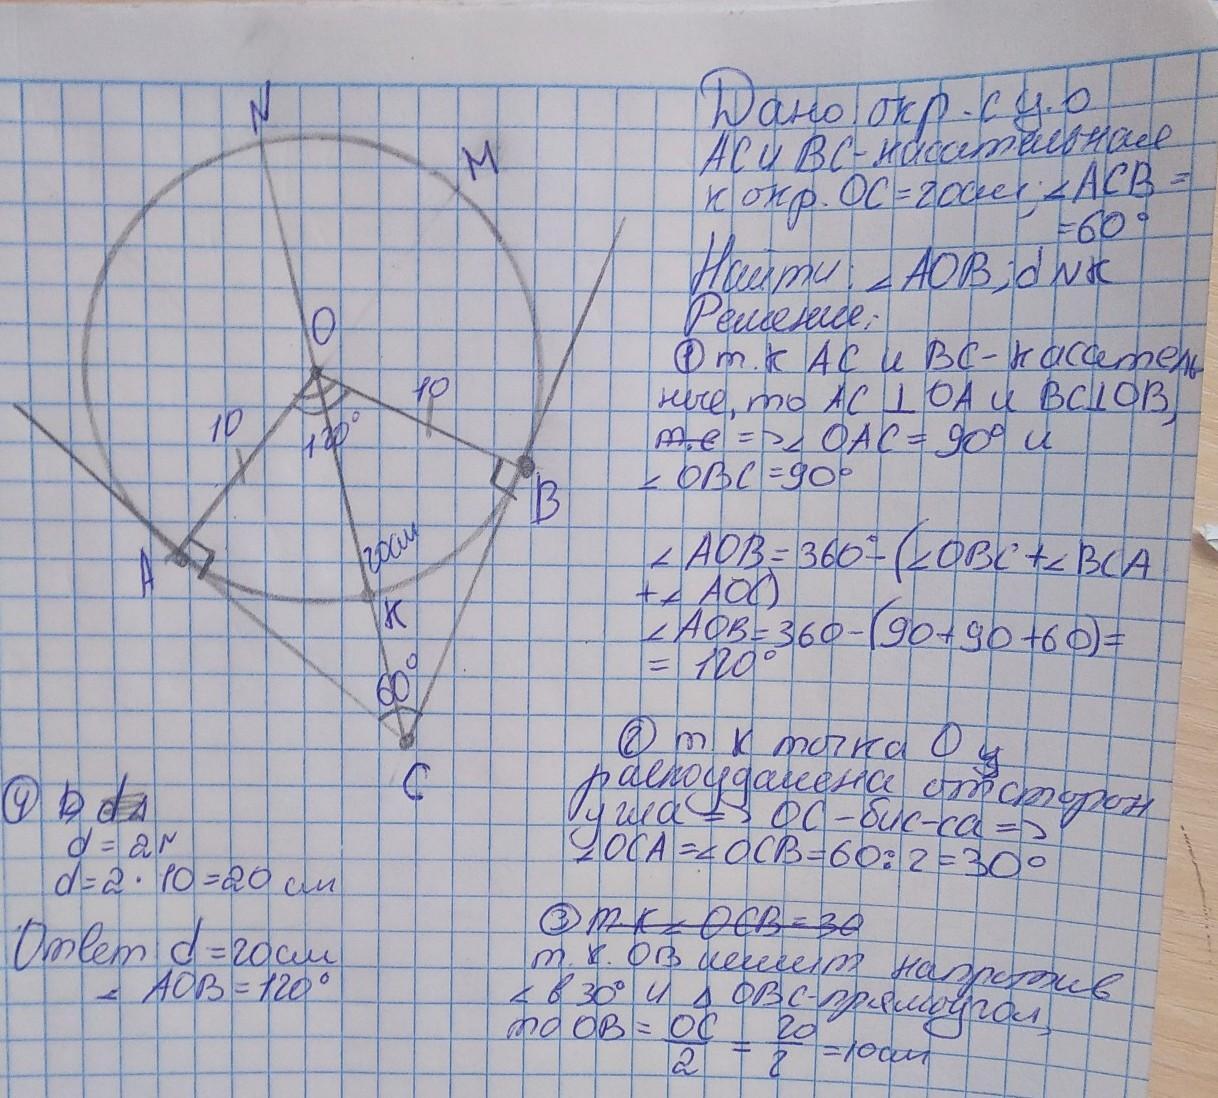 N
M
O
10
10
120°
A
B
20см
K
60°
C
Дано окр. с ц. О
AC и BC - касательные
к окр. OC = 20см; ∠ACB =
= 60°
Найти: ∠AOB; d NK
Решение:
① т.к AC и BC - касатель
ные, то AC ⊥ OA и BC ⊥ OB,
т.е => ∠ OAC = 90° и
∠ OBC = 90°
∠ AOB = 360° - (∠OBC + ∠BCA
+ ∠ AOC)
∠AOB = 360 - (90 + 90 + 60) =
= 120°
② т к точка О
равноудалена от сторон
угла => OC - бис-са =>
∠OCA = ∠OCB = 60 : 2 = 30°
③ т к ∠ OCB = 30
т. к. OB лежит напротив
∠ в 30° и △ OBC - прямоугол,
то OB = OC/2 = 20/2 = 10см
④
d = 2r
d = 2 · 10 = 20 см
Ответ d = 20см
∠ AOB = 120°